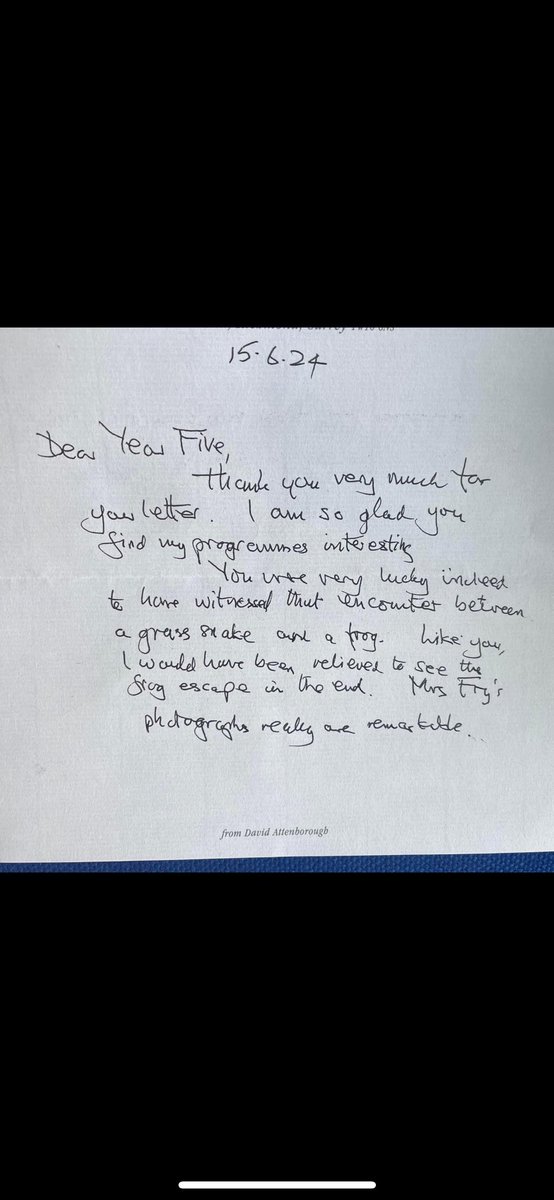 15.6.24
Dear Year Five,
Thank you very much for
your letter. I am so glad you
find my programmes interesting
You were very lucky indeed
to have witnessed that encounter between
a grass snake and a frog. Like you,
I would have been relieved to see the
frog escape in the end. Mrs Fry's
photographs really are remarkable...
from David Attenborough